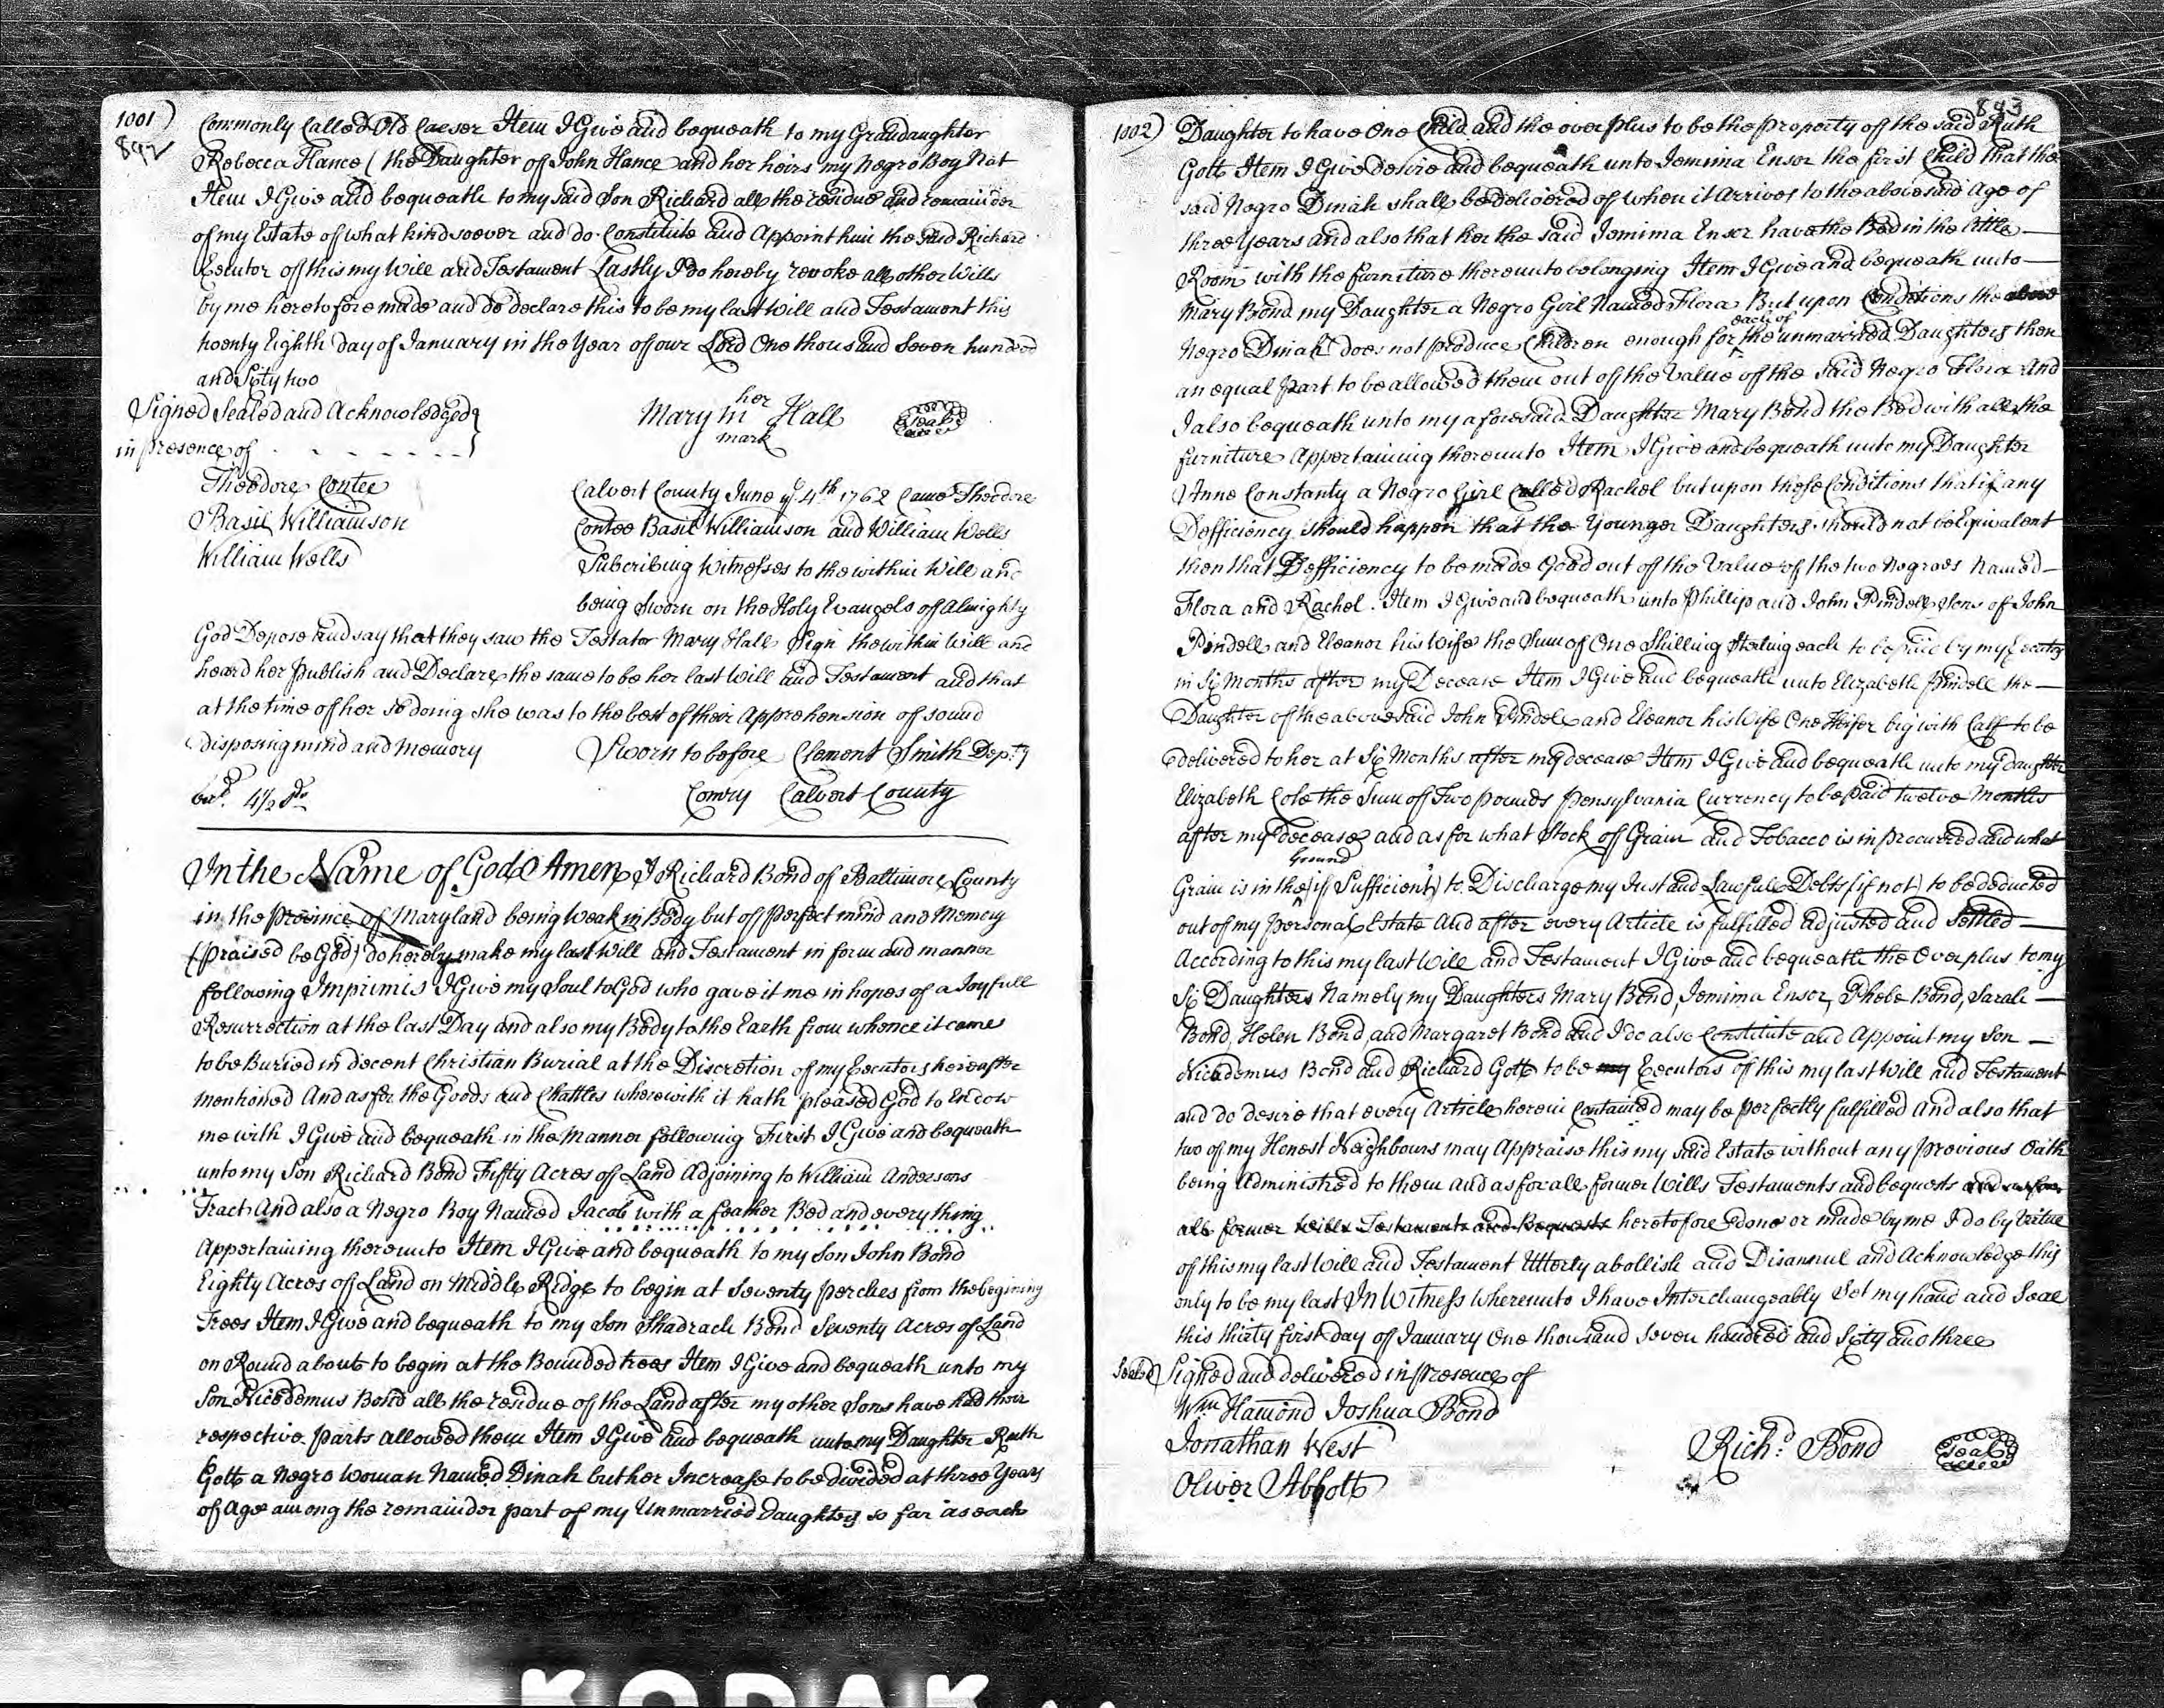 1001)
892
Commonly Called Old Caesar Item I Give and bequeath to my Grandaughter
Rebecca Hance (the Daughter of John Hance and her heirs my Negro Boy Nat
Item I Give and bequeath to my said Son Richard all the residue and remainder
of my Estate of what kind soever and do Constitute and Appoint him the said Richard
Executor of this my Will and Testament Lastly I do hereby revoke all other Wills
by me heretofore made and do declare this to be my last Will and Testament this
twenty Eighth day of January in the Year of our Lord One thousand Seven hundred
and Sixty two
Signed Sealed and Acknowledged
in presence of
her
Mary m Hall
mark
Seal
Theodore Contee
Basil Williamson
William Wells
Calvert County June ye 4th 1762 Came Theodore
Contee Basil Williamson and William Wells
Subcribing Witnesses to the within Will and
being Sworn on the Holy Evangels of Almighty
God Depose and say that they saw the Testator Mary Hall Sign the within Will and
heard her Publish and Declare the same to be her last Will and Testament and that
at the time of her so doing she was to the best of their Apprehension of sound
disposing mind and Memory Sworn to before Clement Smith Depty
Comry Calvert County
In the Name of God Amen I Richard Bond of Baltimore County
in the Province of Maryland being Weak in Body but of perfect mind and Memory
(praised be God) do hereby make my last Will and Testament in form and manner
following Imprimis I Give my Soul to God who gave it me in hopes of a Joyfull
Resurrection at the last Day and also my Body to the Earth from whence it came
to be Buried in decent Christian Burial at the Discretion of my Executors hereafter
mentioned And as for the Goods and Chattles wherewith it hath pleased God to Endow
me with I Give and bequeath in the Manner following First I Give and bequeath
unto my Son Richard Bond Fifty Acres of Land Adjoining to William Andersons
Tract And also a Negro Boy Named Jacob with a feather Bed and every thing
Appertaining thereunto Item I Give and bequeath to my Son John Bond
Eighty Acres of Land on Middle Ridge to begin at Seventy perches from the begining
Trees Item I Give and bequeath to my Son Shadrach Bond Seventy Acres of Land
on Round about to begin at the Bounded trees Item I Give and bequeath unto my
Son Nicodemus Bond all the residue of the Land after my other Sons have had their
respective parts allowed them Item I Give and bequeath unto my Daughter Ruth
Gott a Negro Woman Named Dinah but her Increase to be divided at three Years
of Age among the remainder part of my Unmarried Daughters so far as each
893
1002)
Daughter to have One Child and the over plus to be the property of the said Ruth
Gott Item I Give desire and bequeath unto Jemima Ensor the first Child that the
said Negro Dinah shall be delivered of when it arrives to the abovesaid Age of
three Years and also that her the said Jemima Ensor have the Bed in the little
Room with the furniture thereunto belonging Item I Give and bequeath unto
Mary Bond my Daughter a Negro Girl Named Flora But upon Conditions the above
each of
Negro Dinah does not produce Children enough for the unmarried Daughters then
an equal part to be allowed them out of the Value of the said Negro Flora And
I also bequeath unto my aforesaid Daughter Mary Bond the Bed with all the
furniture Appertaining thereunto Item I Give and bequeath unto my Daughter
Anne Constanty a Negro Girl Called Rachel but upon these Conditions that if any
Defficiency should happen that the Younger Daughters should not be Equivalent
then that Defficiency to be made Good out of the Value of the two Negroes Named
Flora and Rachel. Item I Give and bequeath unto Phillip and John Pindell Sons of John
Pindell and Eleanor his Wife the Sum of One Shilling Sterling each to be paid by my Executors
in Six Months after my Decease Item I Give and bequeath unto Elizabeth Pindell the
Daughter of the abovesaid John Pindell and Eleanor his Wife One Heifer big with Calf to be
delivered to her at Six Months after my decease Item I Give and bequeath unto my daughter
Elizabeth Cole the Sum of Two Pounds Pensylvania Currency to be paid twelve Months
after my decease and as for what Stock of Grain and Tobacco is in procured and what
Ground
Grain is in the (if Sufficient) to Discharge my Just and Lawfull Debts (if not) to be deducted
out of my personal Estate And after every Article is fulfilled adjusted and Settled
According to this my last Will and Testament I Give and bequeath the Overplus to my
Six Daughters Namely my Daughters Mary Bond, Jemima Ensor, Phebe Bond, Sarah
Bond, Helen Bond, and Margaret Bond and I do also Constitute and Appoint my Son
Nicodemus Bond and Richard Gott to be my Executors of this my last Will and Testament
and do desire that every Article herein Contained may be perfectly fulfilled And also that
two of my Honest Neighbours may Appraise this my said Estate without any Previous Oath
being Administred to them and as for all former Wills Testaments and bequests and as for
all former Wills Testaments and Bequests heretofore done or made by me I do by Virtue
of this my last Will and Testament Utterly abollish and Disannul and Acknowledge this
only to be my last In Witness Whereunto I have Interchangeably Set my hand and Seal
this thirty first day of January One thousand seven hundred and Sixty and three
Sealed Signed and delivered in Presence of
Wm Hamond Joshua Bond
Jonathan West
Oliver Abbott
Richd. Bond
Seal
KODAK